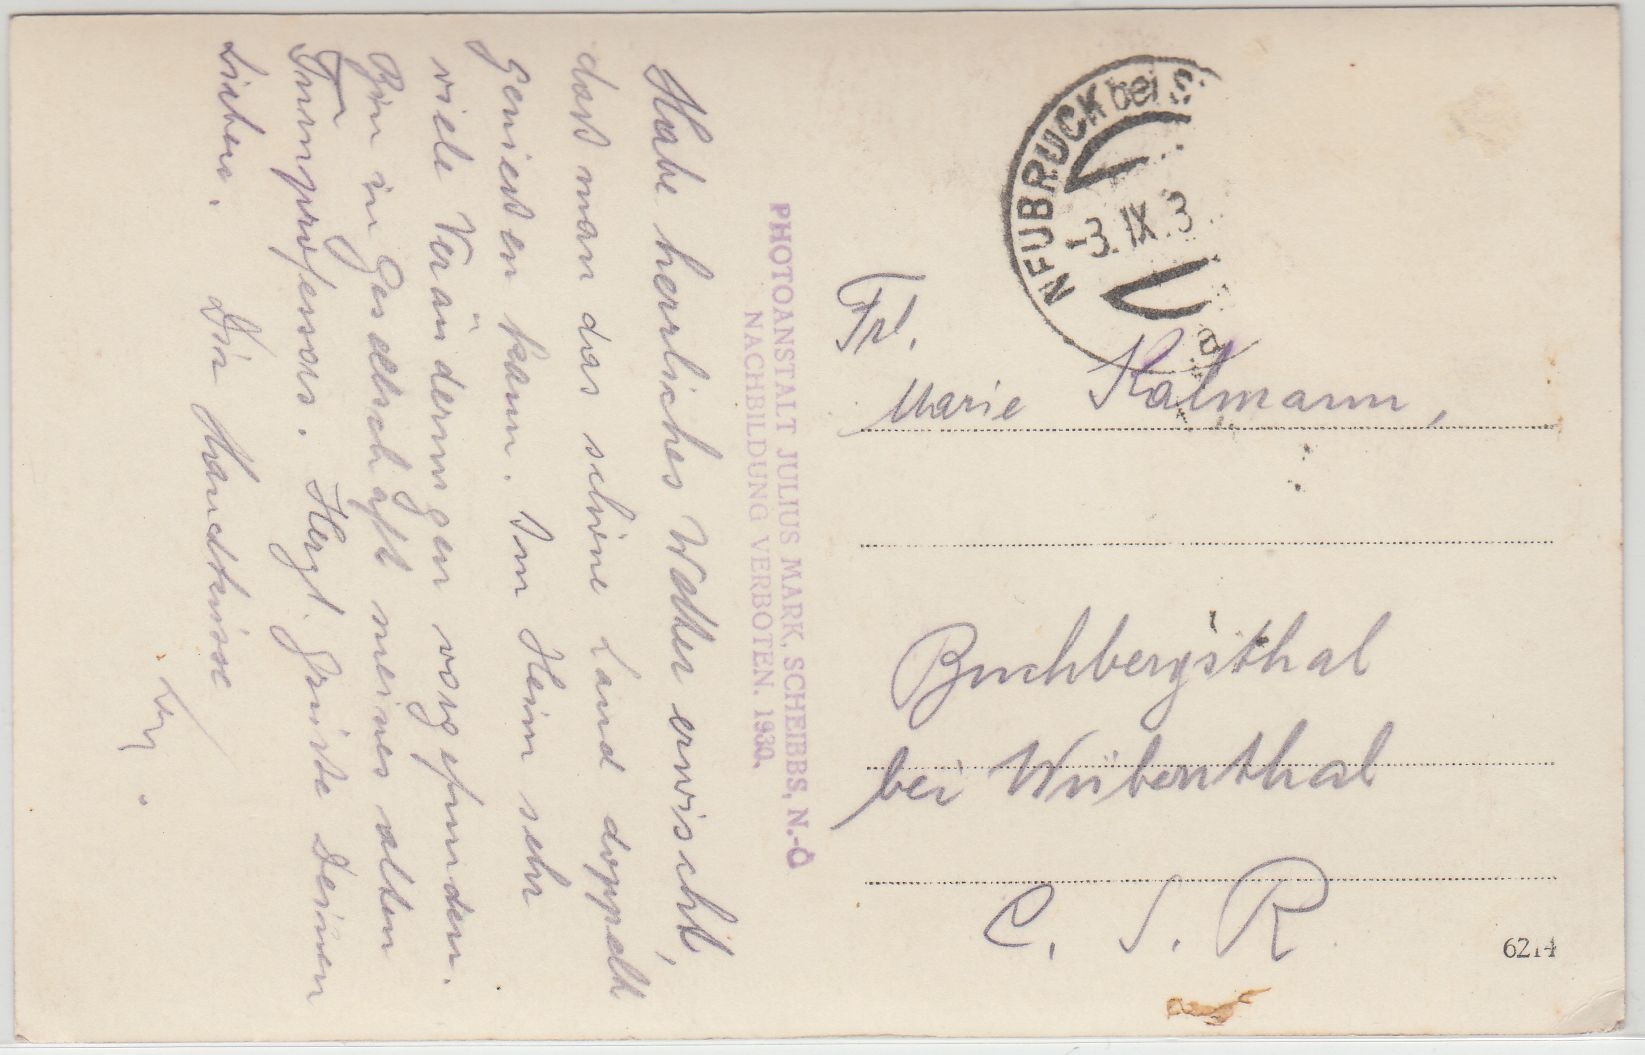 Habe herrliches Wetter erwischt,
dass man das schöne Land doppelt
geniessen kann. Im Heim sehr
viele Veränderungen vorgefunden.
Bin in Gesellschaft meines alten
Turnprofessors. Herzl. Grüsse Deinen
Lieben. Die
PHOTOANSTALT JULIUS MARK, SCHEIBBS, N.-Ö
NACHBILDUNG VERBOTEN. 1930.
NEUBRUCK bei S
-3. IX. 3
Frl.
Marie Kalmann,
Buchbergsthal
bei Würbenthal
C. S. R.
6214